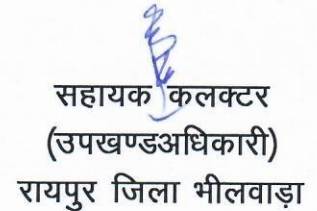 सहायक कलक्टर
(उपखण्डअधिकारी)
रायपुर जिला भीलवाड़ा